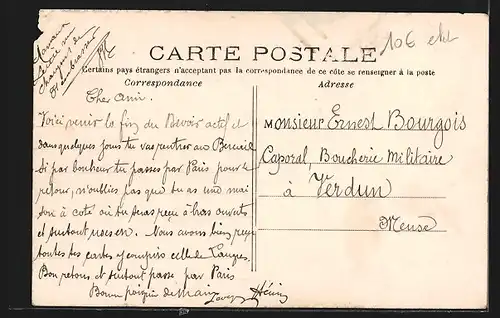 CARTE POSTALE
106
Certains pays étrangers n'acceptant pas la correspondance de ce côté se renseigner à la poste
Correspondance
Adresse
Cher Ami.
Voici venir la fin du Devoir actif et
dans quelques jours tu vas rentrer au Bercail
Si par bonheur tu passes par Paris pour le
retour, n'oublies pas que tu as une mai
son à coté où tu seras reçu à bras ouverts
et surtout
Nous avons bien reçu
toutes tes cartes y compris celle de Langres.
Bon retour et surtout passe par Paris
Bonne poignée de Main
Monsieur Ernest Bourgois
Caporal, Boucherie Militaire
à Verdun
Meuse